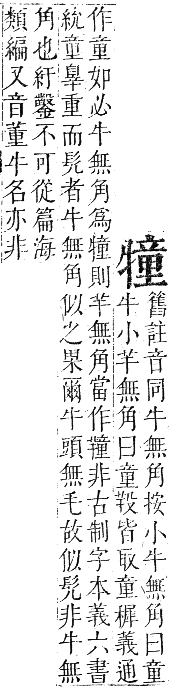 犝
舊註音同牛無角按小牛無角曰童
牛小羊無角曰童羖皆取童穉義通
作童如必牛無角爲犝則羊無角當作非古制字本義六書
統童辠重而髡者牛無角似之果爾牛頭無毛故似髡非牛無
角也紆鑿不可從篇海
類編又音董牛名亦非